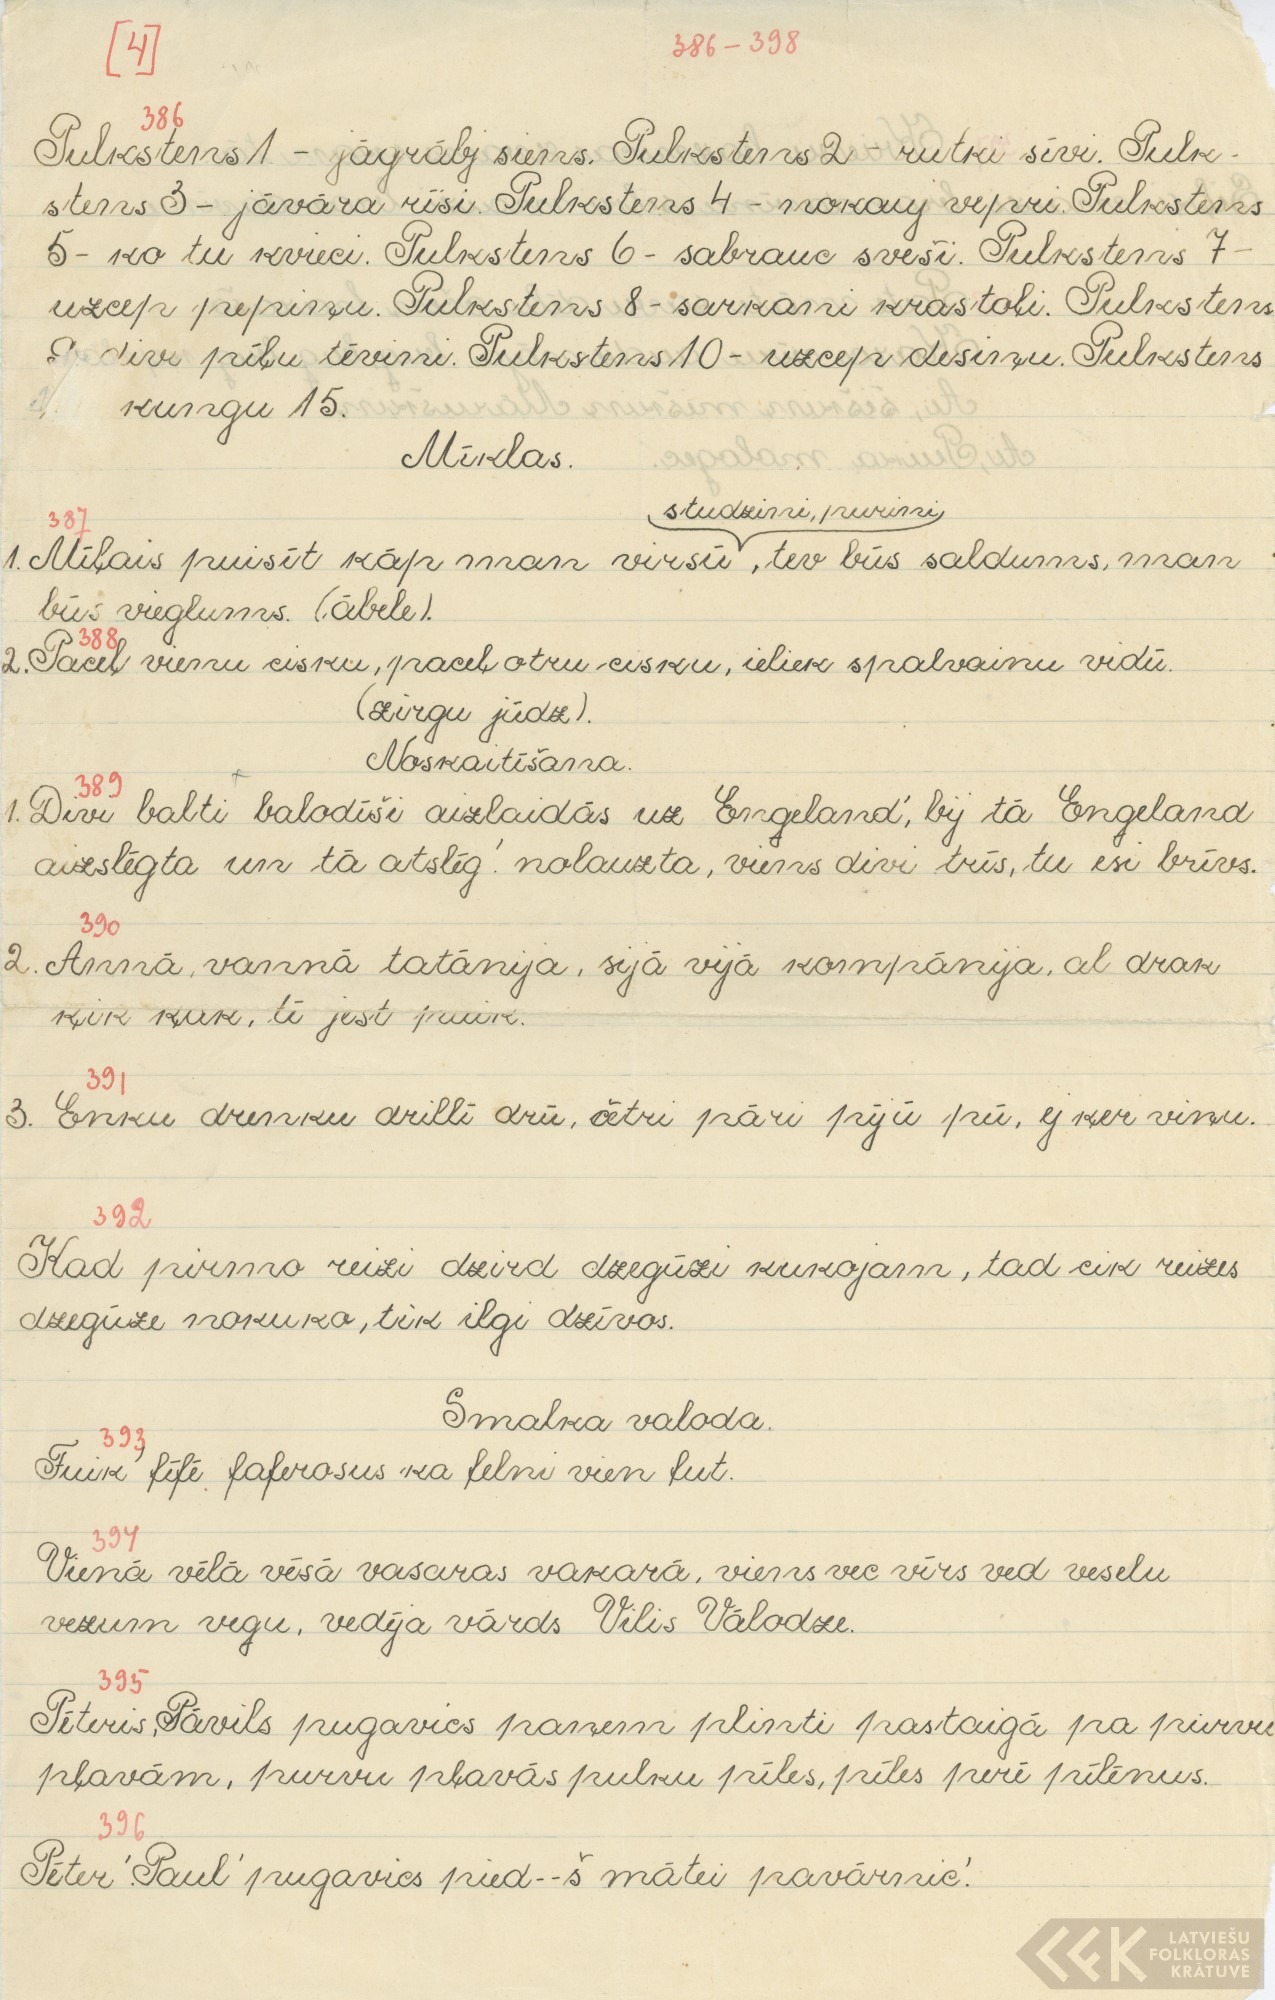 [4]
386 – 398
386
Pulkstens 1 – jāgrābj siens. Pulkstens 2 – rutki sīvi. Pulk-
stens 3 – jāvāra rīsi. Pulkstens 4 – nokauj vepri. Pulkstens
5 – ko tu kvieci. Pulkstens 6 – sabrauc sveši. Pulkstens 7 –
uzcep pepiņu. Pulkstens 8 – sarkani krastoļi. Pulkstens
9 divi pīļu tēviņi. Pulkstens 10 – uzcep desiņu. Pulkstens
kungu 15.
Mīklas.
387
studziņi, puriņi
1. Mīļais puisīt kāp man virsū, tev būs saldums, man
būs vieglums. (ābele).
388
2. Pacel vienu cisku, pacel otru cisku, ieliek spalvainu vidū.
(zirgu jūdz).
Noskaitīšana.
389
1. Divi balti balodīši aizlaidās uz Engeland', bij tā Engeland
aizslēgta un tā atslēg' nolauzta, viens divi trīs, tu esi brīvs.
390
2. Annā, vannā tatānija, sijā vijā kompānija, al drak
ķik ķak, ti jest puik.
391
3. Enku drenku drillī drū, četri pāri pijū pū, ej ķer viņu.
392
Kad pirmo reizi dzird dzegūzi kukojam, tad cik reizes
dzegūze nokuko, tik ilgi dzīvos.
Smalka valoda.
393
Fuik' fīfē faferosus ka felni vien fut.
394
Vienā vēlā vēsā vasaras vakarā, viens vec vīrs ved veselu
vezum vegu, vedēja vārds Vilis Vālodze.
395
Pēteris, Pāvils pugavics paņem plinti pastaigā pa purvu
pļavām, purvu pļavās pulku pīles, pīles perē pīlēnus.
396
Pēter' Paul' pugavics pied--š mātei pavārnic'.
LATVIEŠU
FOLKLORAS
KRĀTUVE